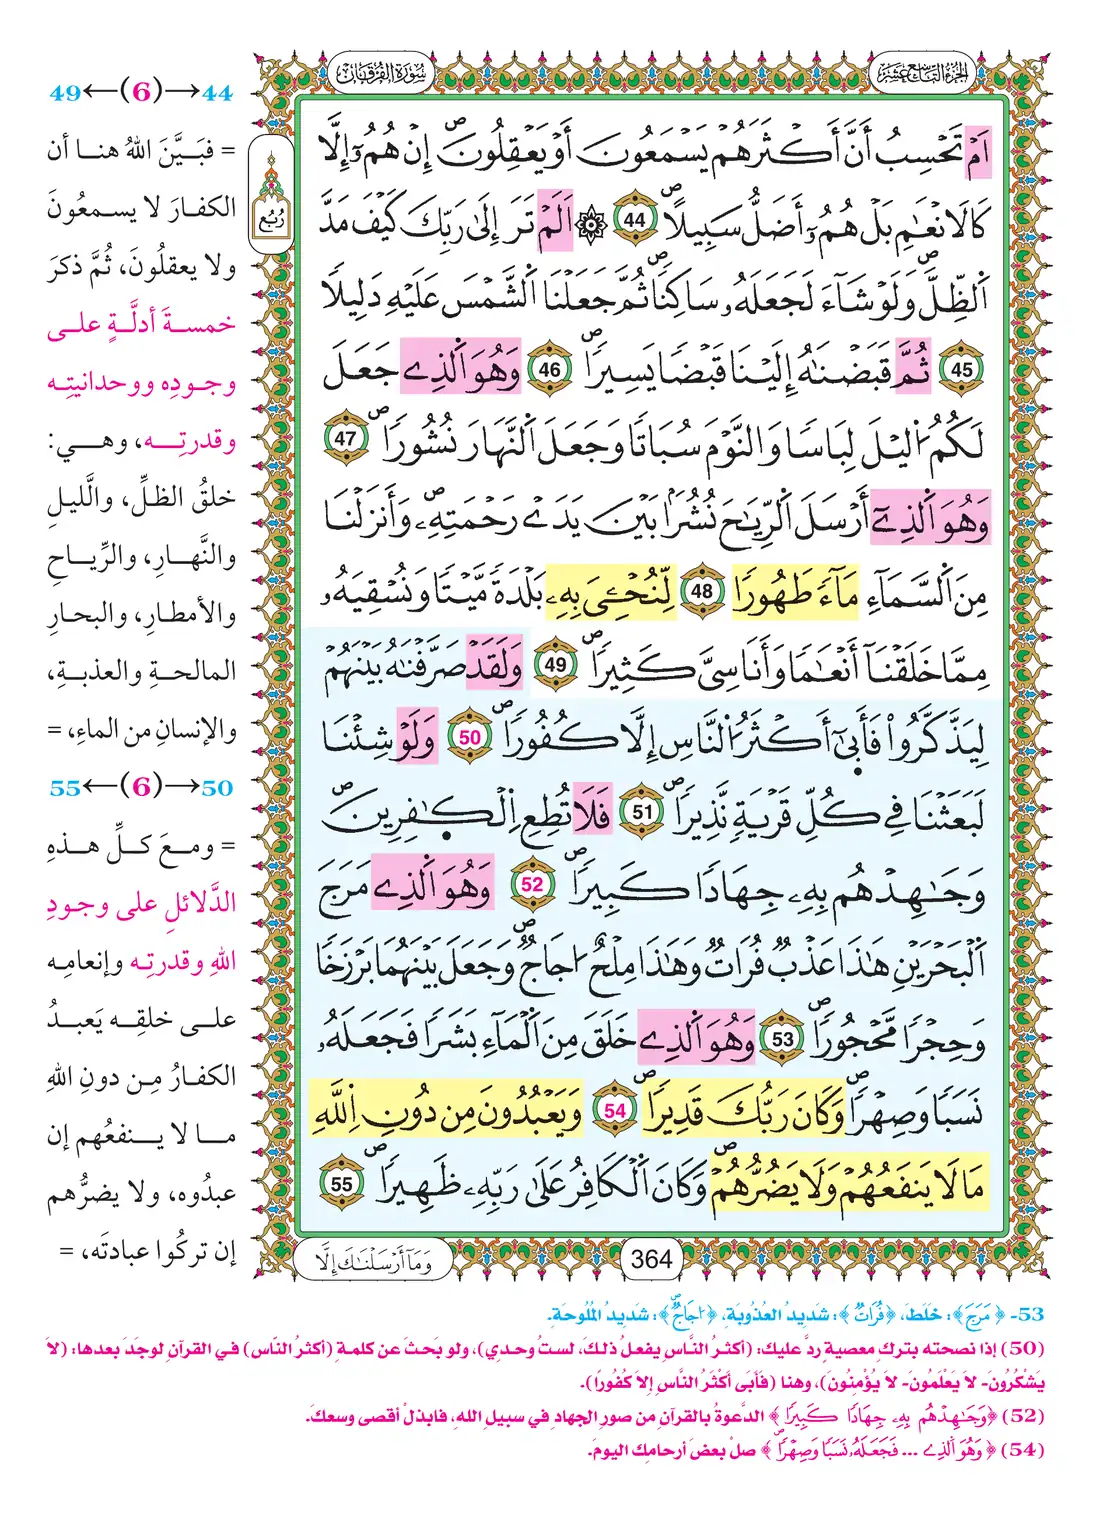 الجزء التاسع عشر
سورة الفرقان
اَمْ تَحْسِبُ أَنَّ أَكْثَرَهُمْ يَسْمَعُونَ أَوْ يَعْقِلُونَ إِنْ هُمُۥٓ إِلَّا
كَالَانْعَٰمِ بَلْ هُمُۥٓ أَضَلُّ سَبِيلًا 44 ۞ اَلَمْ تَرَ إِلَىٰ رَبِّكَ كَيْفَ مَدَّ
اَلظِّلَّ وَلَوْ شَآءَ لَجَعَلَهُۥ سَاكِنًا ثُمَّ جَعَلْنَا اَلشَّمْسَ عَلَيْهِ دَلِيلًا
45 ثُمَّ قَبَضْنَٰهُ إِلَيْنَا قَبْضًا يَسِيرًا 46 وَهُوَ اَلذِے جَعَلَ
لَكُمُ اُليْلَ لِبَاسًا وَالنَّوْمَ سُبَاتًا وَجَعَلَ اَلنَّهَارَ نُشُورًا 47
وَهُوَ اَلذِےٓ أَرْسَلَ اَلرِّيَٰحَ نُشُرًۢا بَيْنَ يَدَےْ رَحْمَتِهِۦ وَأَنزَلْنَا
مِنَ اَلسَّمَآءِ مَآءً طَهُورًا 48 لِّنُحْـِۧيَ بِهِۦ بَلْدَةً مَّيْتًا وَنُسْقِيَهُۥ
مِمَّا خَلَقْنَآ أَنْعَٰمًا وَأَنَاسِيَّ كَثِيرًا 49 وَلَقَدْ صَرَّفْنَٰهُ بَيْنَهُمْ
لِيَذَّكَّرُواْ فَأَبَىٰٓ أَكْثَرُ اُلنَّاسِ إِلَّا كُفُورًا 50 وَلَوْ شِئْنَا
لَبَعَثْنَا فِي كُلِّ قَرْيَةٍ نَّذِيرًا 51 فَلَا تُطِعِ اِلْكَٰفِرِينَ
وَجَٰهِدْهُم بِهِۦ جِهَادًا كَبِيرًا 52 وَهُوَ اَلذِے مَرَجَ
اَلْبَحْرَيْنِ هَٰذَا عَذْبٌ فُرَاتٌ وَهَٰذَا مِلْحٌ اُجَاجٌ وَجَعَلَ بَيْنَهُمَا بَرْزَخًا
وَحِجْرًا مَّحْجُورًا 53 وَهُوَ اَلذِے خَلَقَ مِنَ اَلْمَآءِ بَشَرًا فَجَعَلَهُۥ
نَسَبًا وَصِهْرًا وَكَانَ رَبُّكَ قَدِيرًا 54 وَيَعْبُدُونَ مِن دُونِ اِللَّهِ
مَا لَا يَنفَعُهُمْ وَلَا يَضُرُّهُمْ وَكَانَ اَلْكَافِرُ عَلَىٰ رَبِّهِۦ ظَهِيرًا 55
364
وَمَآ أَرْسَلْنَٰكَ إِلَّا
رُبُع
44→(6)←49
= فبَيَّنَ اللهُ هنا أن
الكفارَ لا يسمعُونَ
ولا يعقلُونَ، ثُمَّ ذكرَ
خمسةَ أدلَّةٍ على
وجودِه ووحدانيتِه
وقدرتِه، وهي:
خلقُ الظلِّ، والَّليلِ
والنَّهارِ، والرِّياحِ
والأمطارِ، والبحارِ
المالحةِ والعذبةِ،
والإنسانِ من الماءِ، =
50→(6)←55
= ومعَ كلِّ هذهِ
الدَّلائلِ على وجودِ
اللهِ وقدرتِه وإنعامِه
على خلقِه يَعبدُ
الكفارُ مِن دونِ اللهِ
ما لا ينفعُهم إن
عبدُوه، ولا يضرُّهم
إن تركُوا عبادتَه، =
53- ﴿مَرَجَ﴾: خلَطَ، ﴿فُرَاتٌ﴾: شديدُ العُذُوبَةِ، ﴿اُجَاجٌ﴾: شديدُ المُلُوحَةِ.
(50) إذا نصحته بتركِ معصيةٍ ردَّ عليك: (أكثرُ النَّاسِ يفعلُ ذلكَ، لستُ وحدِي)، ولو بَحثَ عن كلمةِ (أكثرُ النَّاس) في القرآنِ لوجَدَ بعدها: (لاَ
يَشْكُرُونَ- لاَ يَعْلَمُونَ- لاَ يُؤْمِنُونَ)، وهنا (فَأَبَى أَكْثَرُ النَّاسِ إِلاَّ كُفُورًا).
(52) ﴿وَجَٰهِدْهُم بِهِۦ جِهَادًا كَبِيرًا﴾ الدَّعوةُ بالقرآنِ من صورِ الجهادِ في سبيلِ اللهِ، فابذلْ أقصى وسعكَ.
(54) ﴿وَهُوَ اَلذِے ... فَجَعَلَهُۥ نَسَبًا وَصِهْرًا﴾ صلْ بعضَ أرحامِك اليومَ.